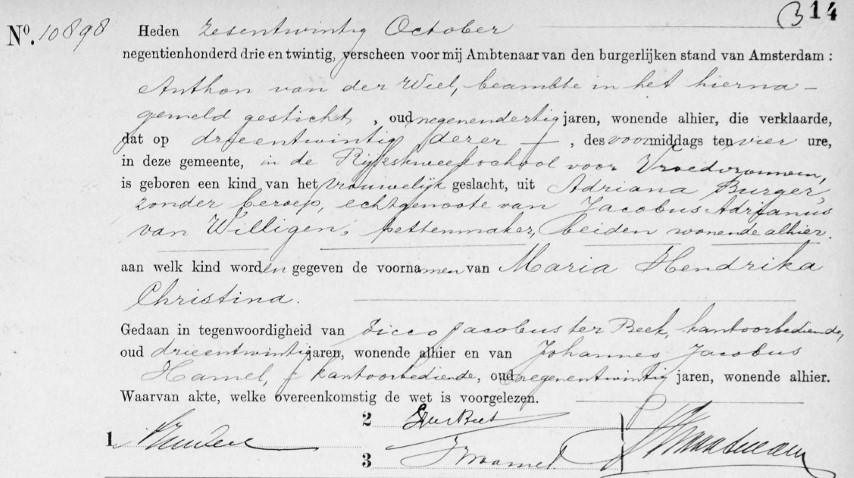 14
No. 10898 Heden zesentwintig October
negentienhonderd drie en twintig, verscheen voor mij Ambtenaar van den burgerlijken stand van Amsterdam :
Anthon van der Wiel, beambte in het hierna -
gemeld gesticht, oud negenendertig jaren, wonende alhier, die verklaarde,
dat op drieentwintig dezer, des voormiddags ten vier ure,
in deze gemeente, in de Rijkskweekschool voor Vroedvrouwen,
is geboren een kind van het vrouwelijk geslacht, uit Adriana Burger,
zonder beroep, echtgenoote van Jacobus Adrianus
van Willigen, pettenmaker, beiden wonende alhier.
aan welk kind worden gegeven de voornamen van Maria Hendrika
Christina.
Gedaan in tegenwoordigheid van Sicco Jacobus ter Beek, kantoorbediende,
oud drieentwintig jaren, wonende alhier en van Johannes Jacobus
Hamel, kantoorbediende, oud negenentwintig jaren, wonende alhier.
Waarvan akte, welke overeenkomstig de wet is voorgelezen.
1
2
3